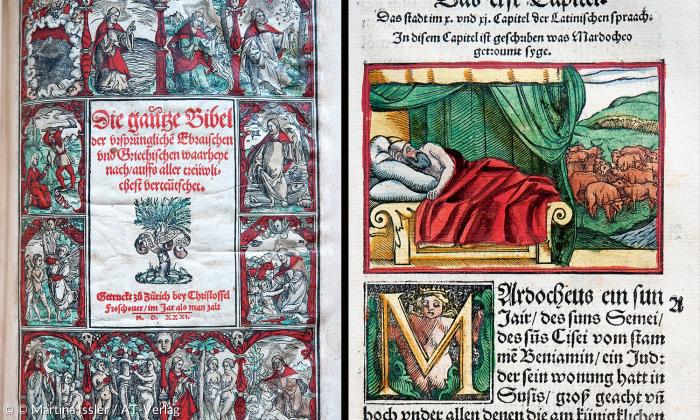 Die gantze Bibel
der vrsprünglichē Ebraischen
vnd Griechischen waarheyt
nach/ auffs aller treüwli-
chest verteütschet.
Getruckt zů Zürich bey Christoffel
Froschouer/ im Jar als man zalt
M. D. XXXI.
Das erst Capitel.
Das stadt im x. vnd xj. Capitel der Latinischen spraach.
In disem Capitel ist geschriben was Mardocheo
getroumt syge.
MArdocheus ein sun
Jair/ des suns Semei/
des sūs Cisei vom stam
mē Beniamin/ ein Jud:
der sein wonung hatt in
Susis/ groß geacht vñ
hoch vnder allen denen die am künigklichen
A
© Martina Issler / AT Verlag